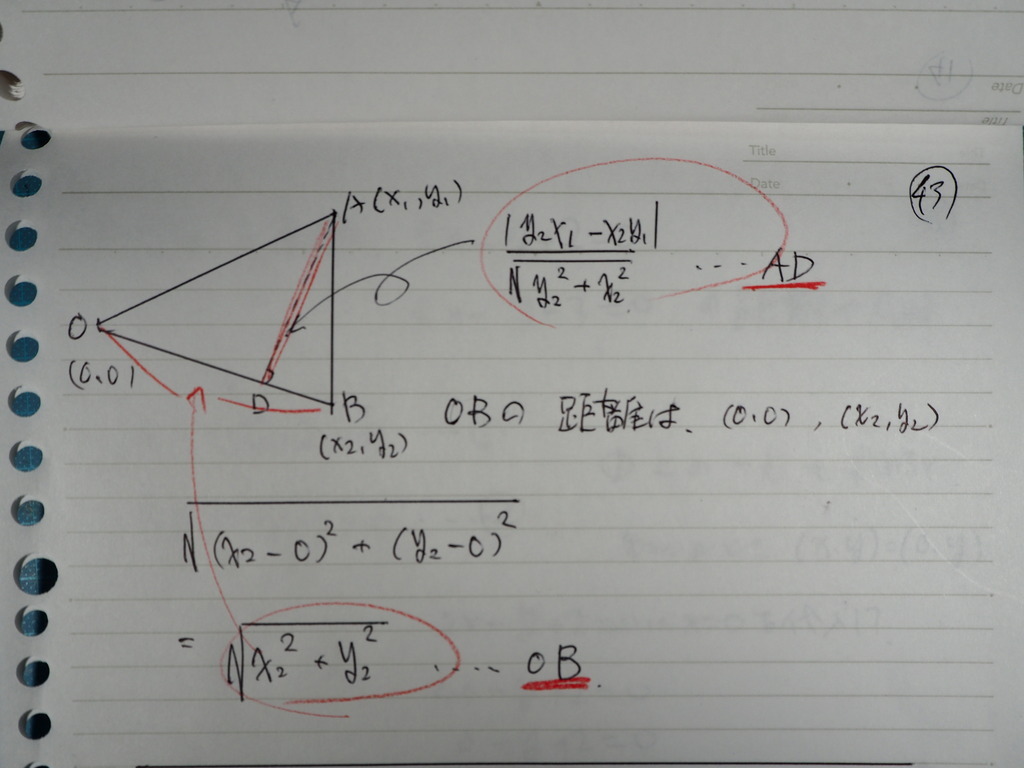 Date
Title
Title
Date
43
A(x₁, y₁)
|y₂x₁ - x₂y₁|
√y₂² + x₂² ････ AD
O
(0.0)
D
B
(x₂, y₂)
OBの 距離は、(0.0), (x₂, y₂)
√(x₂-0)² + (y₂-0)²
= √x₂² + y₂² ････ OB.